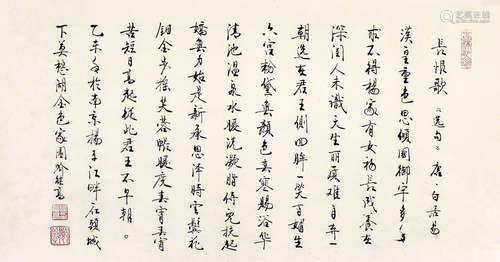 長恨歌《選句》唐·白居易
漢皇重色思傾國御宇多年
求不得楊家有女初長成養在
深閨人未識天生麗質難自弃一
朝選在君王側回眸一笑百媚生
六宮粉黛無顏色春寒賜浴華
清池溫泉水滑洗凝脂侍兒扶起
嬌無力始是新承恩澤時雲鬢花
顏金步搖芙蓉帳暖度春宵春宵
苦短日高起從此君王不早朝。
乙未冬於南京楊子江畔石頭城
下莫愁湖金色家園